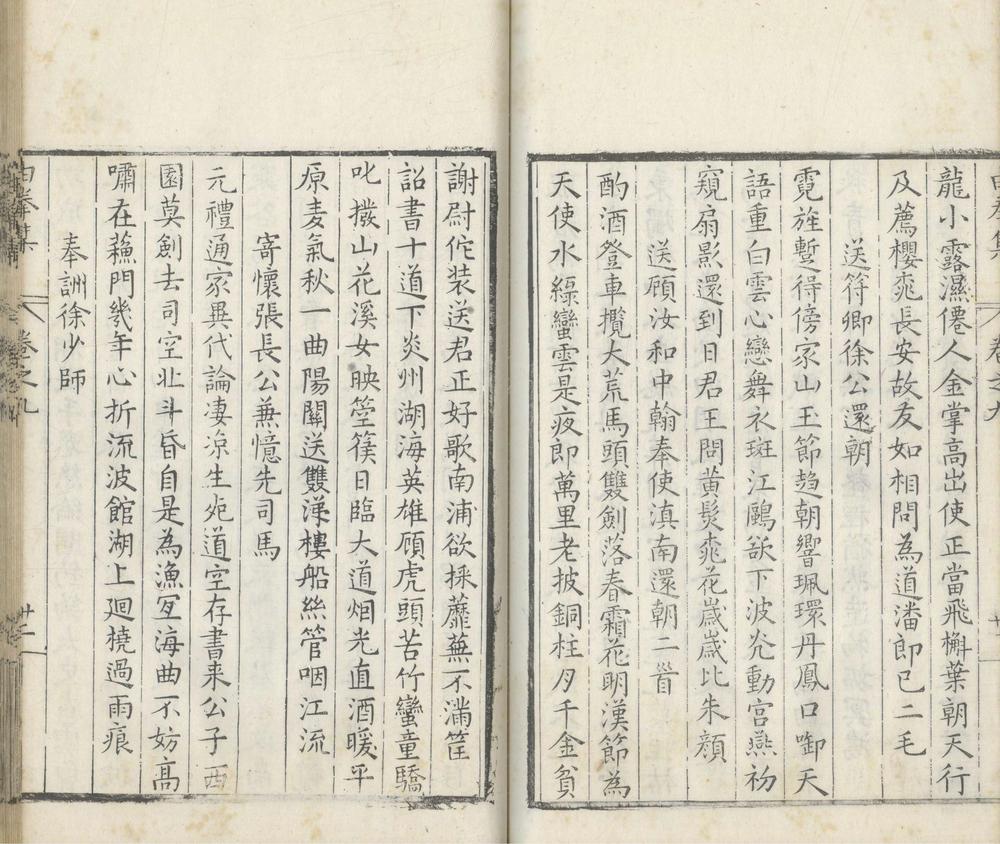 龍小露濕僊人金掌高出使正當飛槲葉朝天行
及薦櫻桃長安故友如相問為道潘郎已二毛
送符卿徐公還朝
霓旌蹔得傍家山玉節趋朝響珮環丹鳳口啣天
語重白雲心戀舞衣斑江鷗欲下波光動宮燕初
窺扇影還到日君王問黄髪桃花歲歲比朱顔
送顧汝和中翰奉使滇南還朝二首
酌酒登車攬大荒馬頭雙劍落春霜花明漢節為
天使水緑蠻雲是夜郎萬里老披銅柱月千金貧
謝尉佗装送君正好歌南浦欲採蘼蕪不滿筐
詔書十道下炎州湖海英雄顧虎頭苦竹蠻童驕
叱撥山花溪女映箜篌日臨大道烟光直酒暖平
原麦氣秋一曲陽關送雙溁樓船絲管咽江流
寄懷張長公蒹憶先司馬
元禮通家異代論淒凉生死道空存書来公子西
園莫創去司空北斗昏自是為漁冝海曲不妨高
嘯在蘓門幾年心折流波館湖上廻橈過雨痕
奉詶徐少師
卷之九